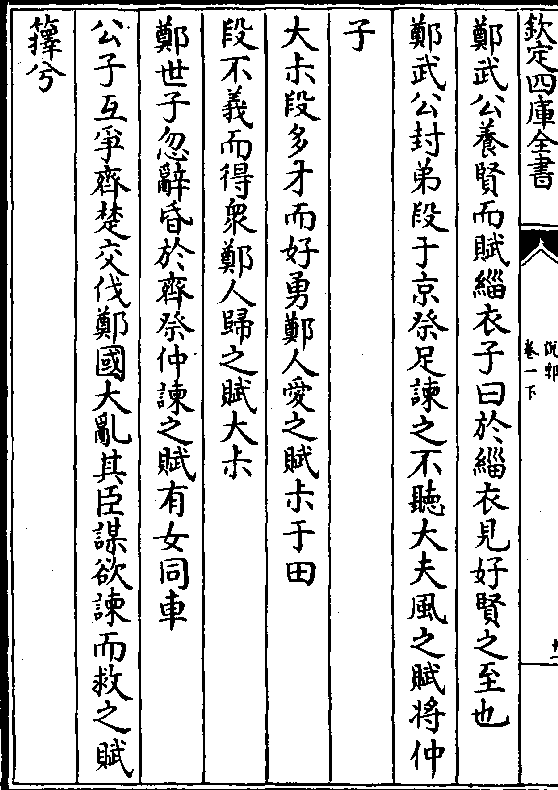 欽定四庫全書
說郛
卷一下
鄭武公養賢而賦緇衣子曰於緇衣見好賢之至也
鄭武公封弟段于京祭足諫之不聽大夫風之賦將仲
子
大尗段多才而好勇鄭人愛之賦尗于田
段不義而得衆鄭人歸之賦大尗
鄭世子忽辭昏於齊祭仲諫之賦有女同車
公子互爭齊楚交伐鄭國大亂其臣謀欲諫而救之賦
籜兮